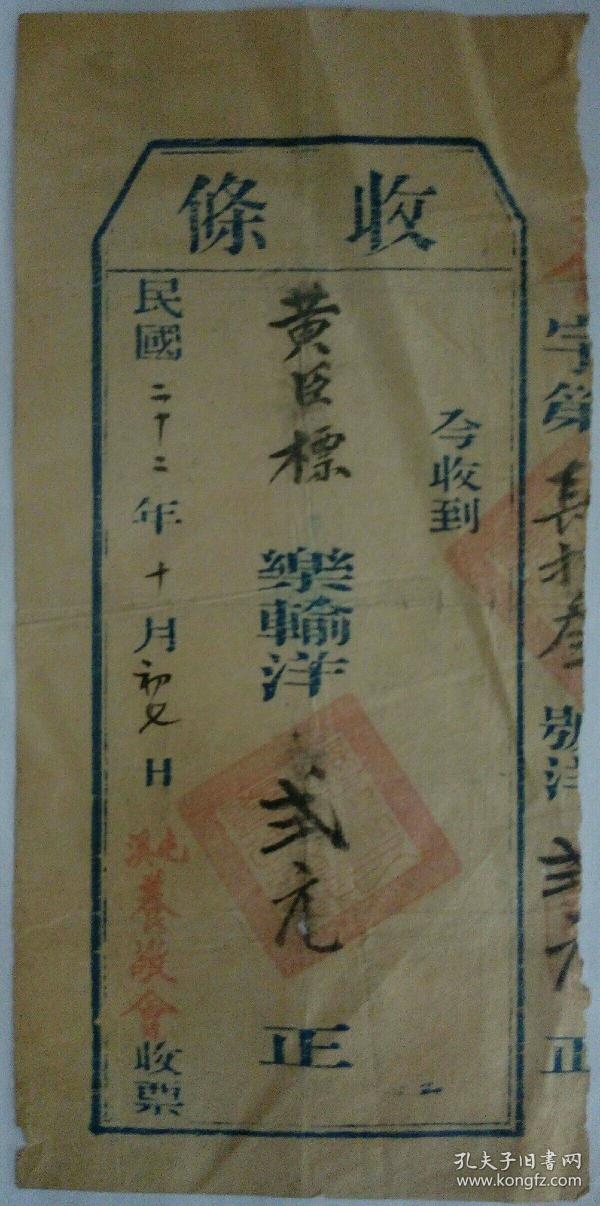 字第 長拾叁 號洋 弍元 正
收條
今收到
黄臣標 樂輸洋 弍元 正
民國二十二年十月初七日
養敬會收票
孔夫子旧书网
www.kongfz.com